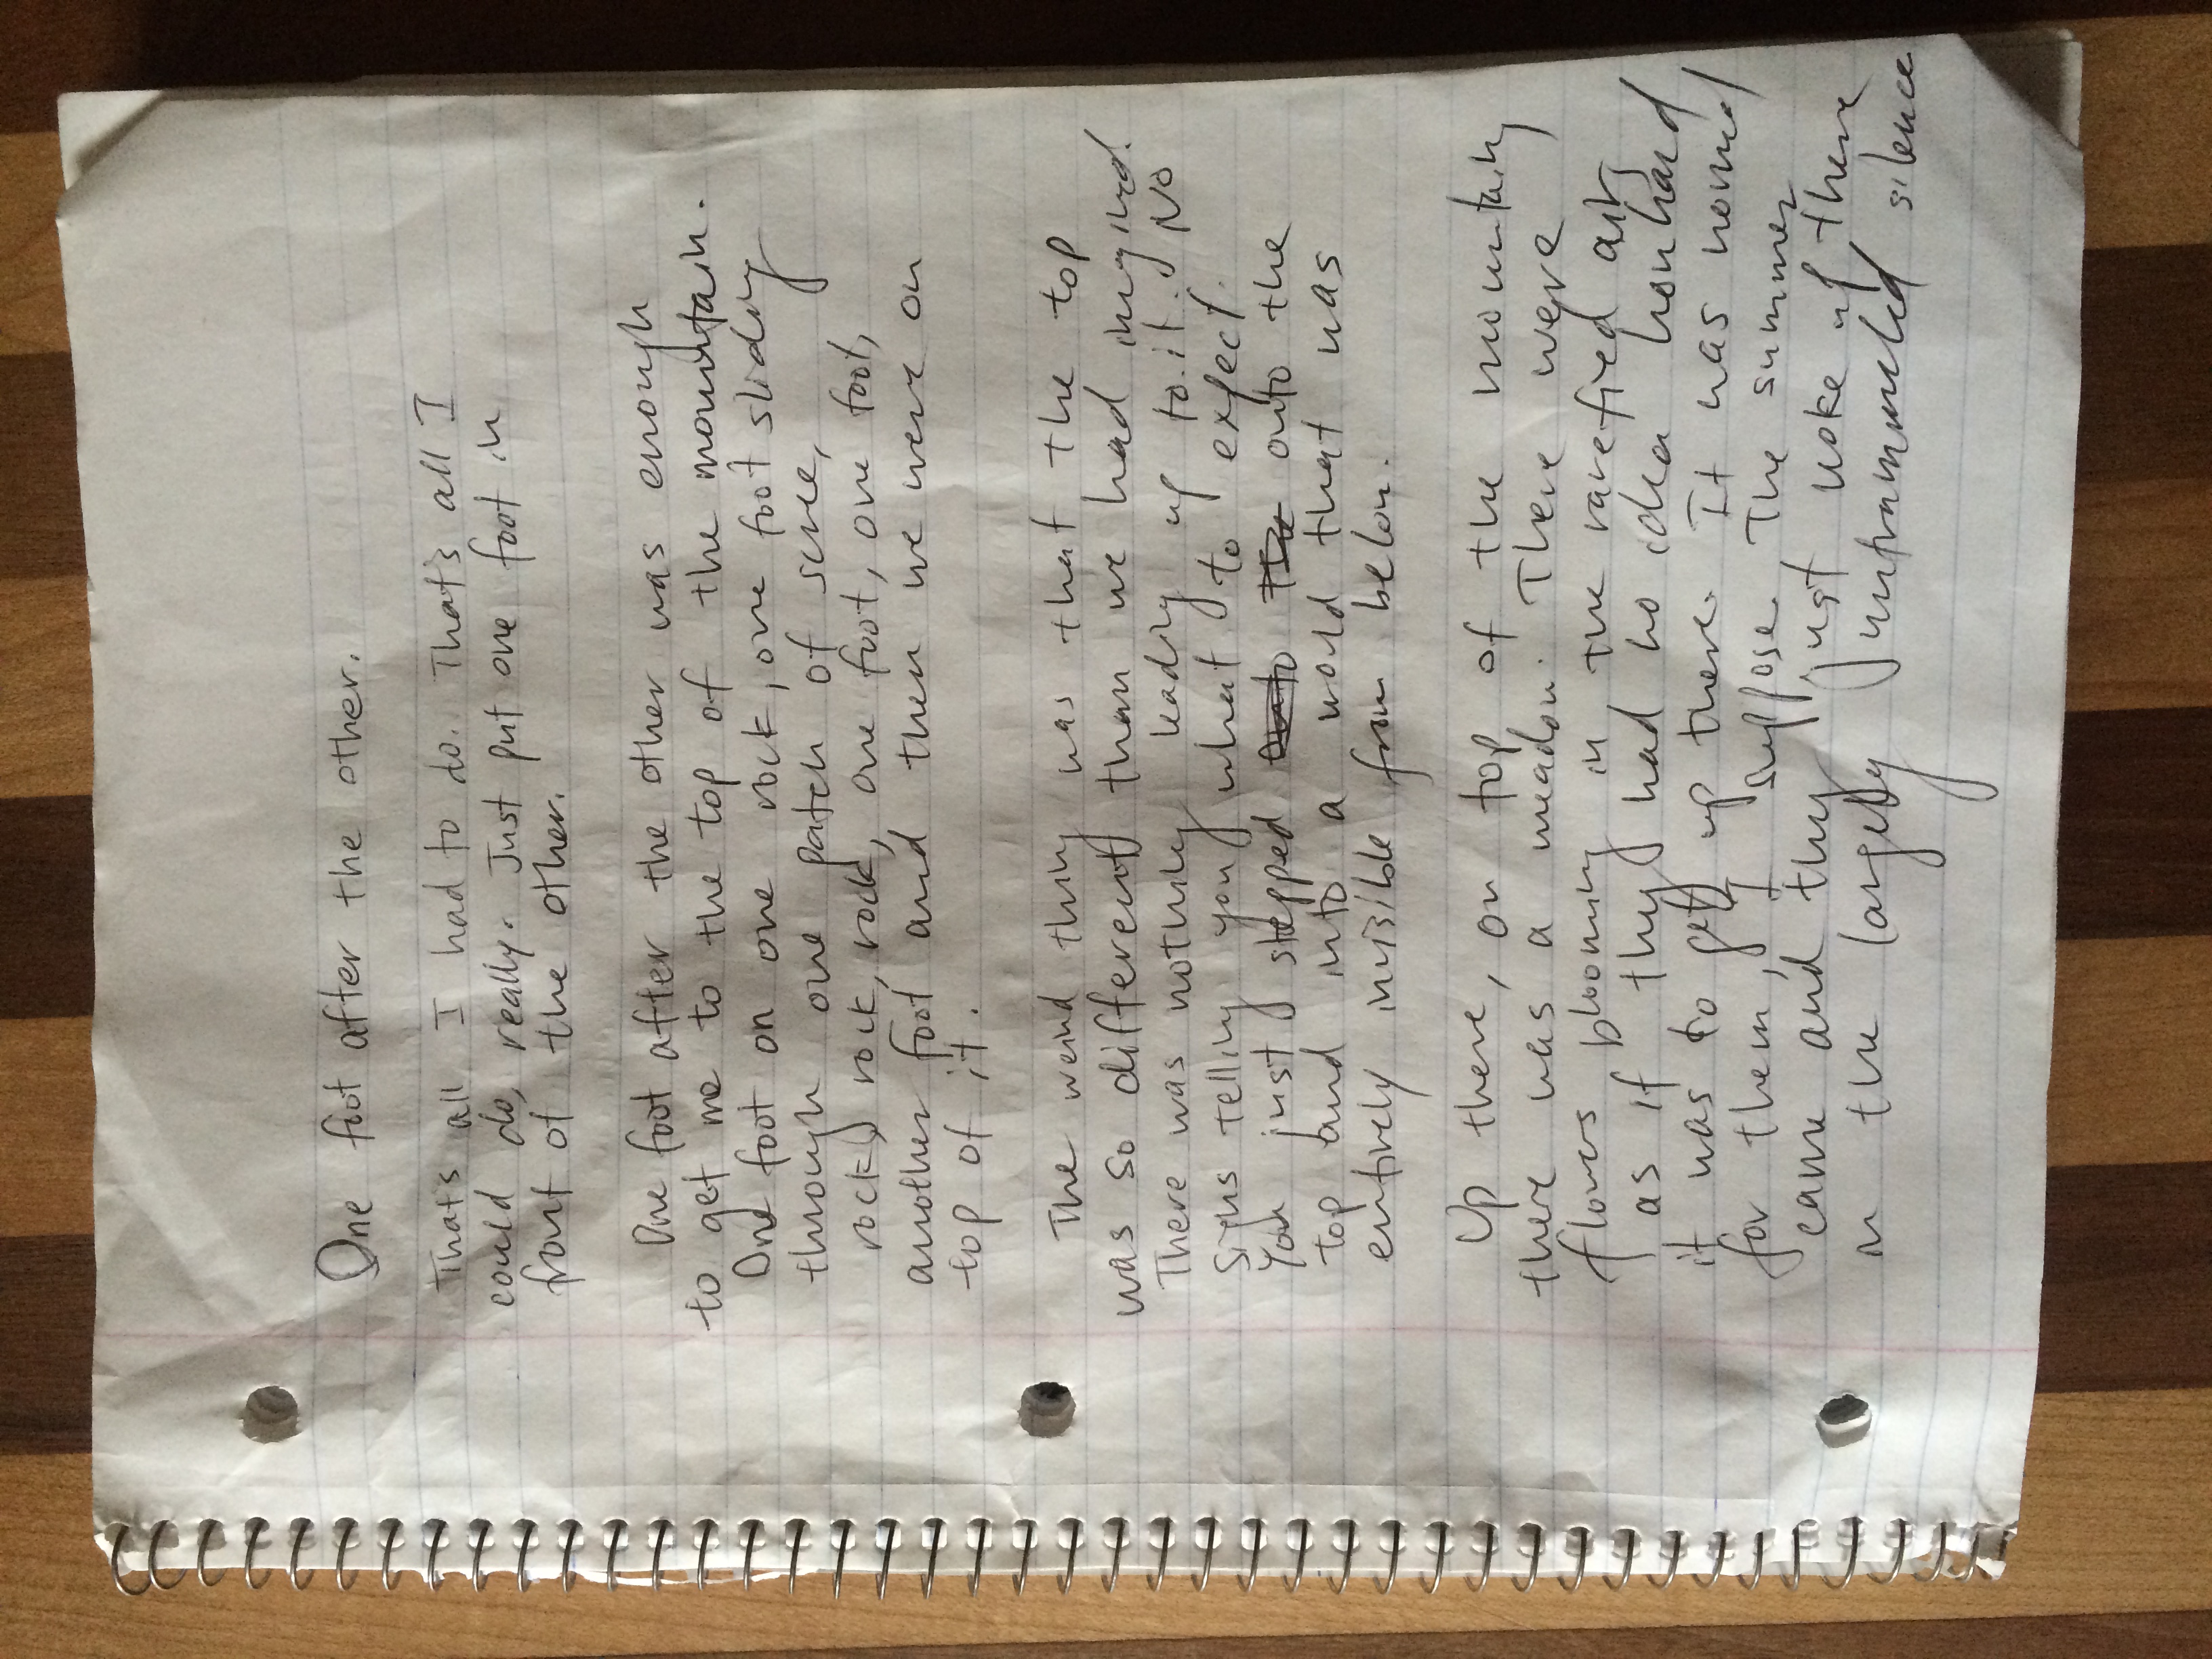 One foot after the other.
That's all I had to do. That's all I
could do, really. Just put one foot in
front of the other.
One foot after the other was enough
to get me to the top of the mountain.
One foot on one rock, one foot sliding
through one patch of scree,
rock, rock, rock, one foot, one foot,
another foot and then we were on
top of it.
The weird thing was that the top
was so different than we had imagined.
There was nothing leading up to it. No
signs telling you what to expect.
You just stepped onto the onto the
top and into a world that was
entirely invisible from below.
Up there, on top of the mountain
there was a meadow. There were
flowers blooming in the rarefied air
as if they had no idea how hard
it was to get up there. It was normal
for them, I suppose. The summer
came and they just woke up there
in the largely untrammeled silence